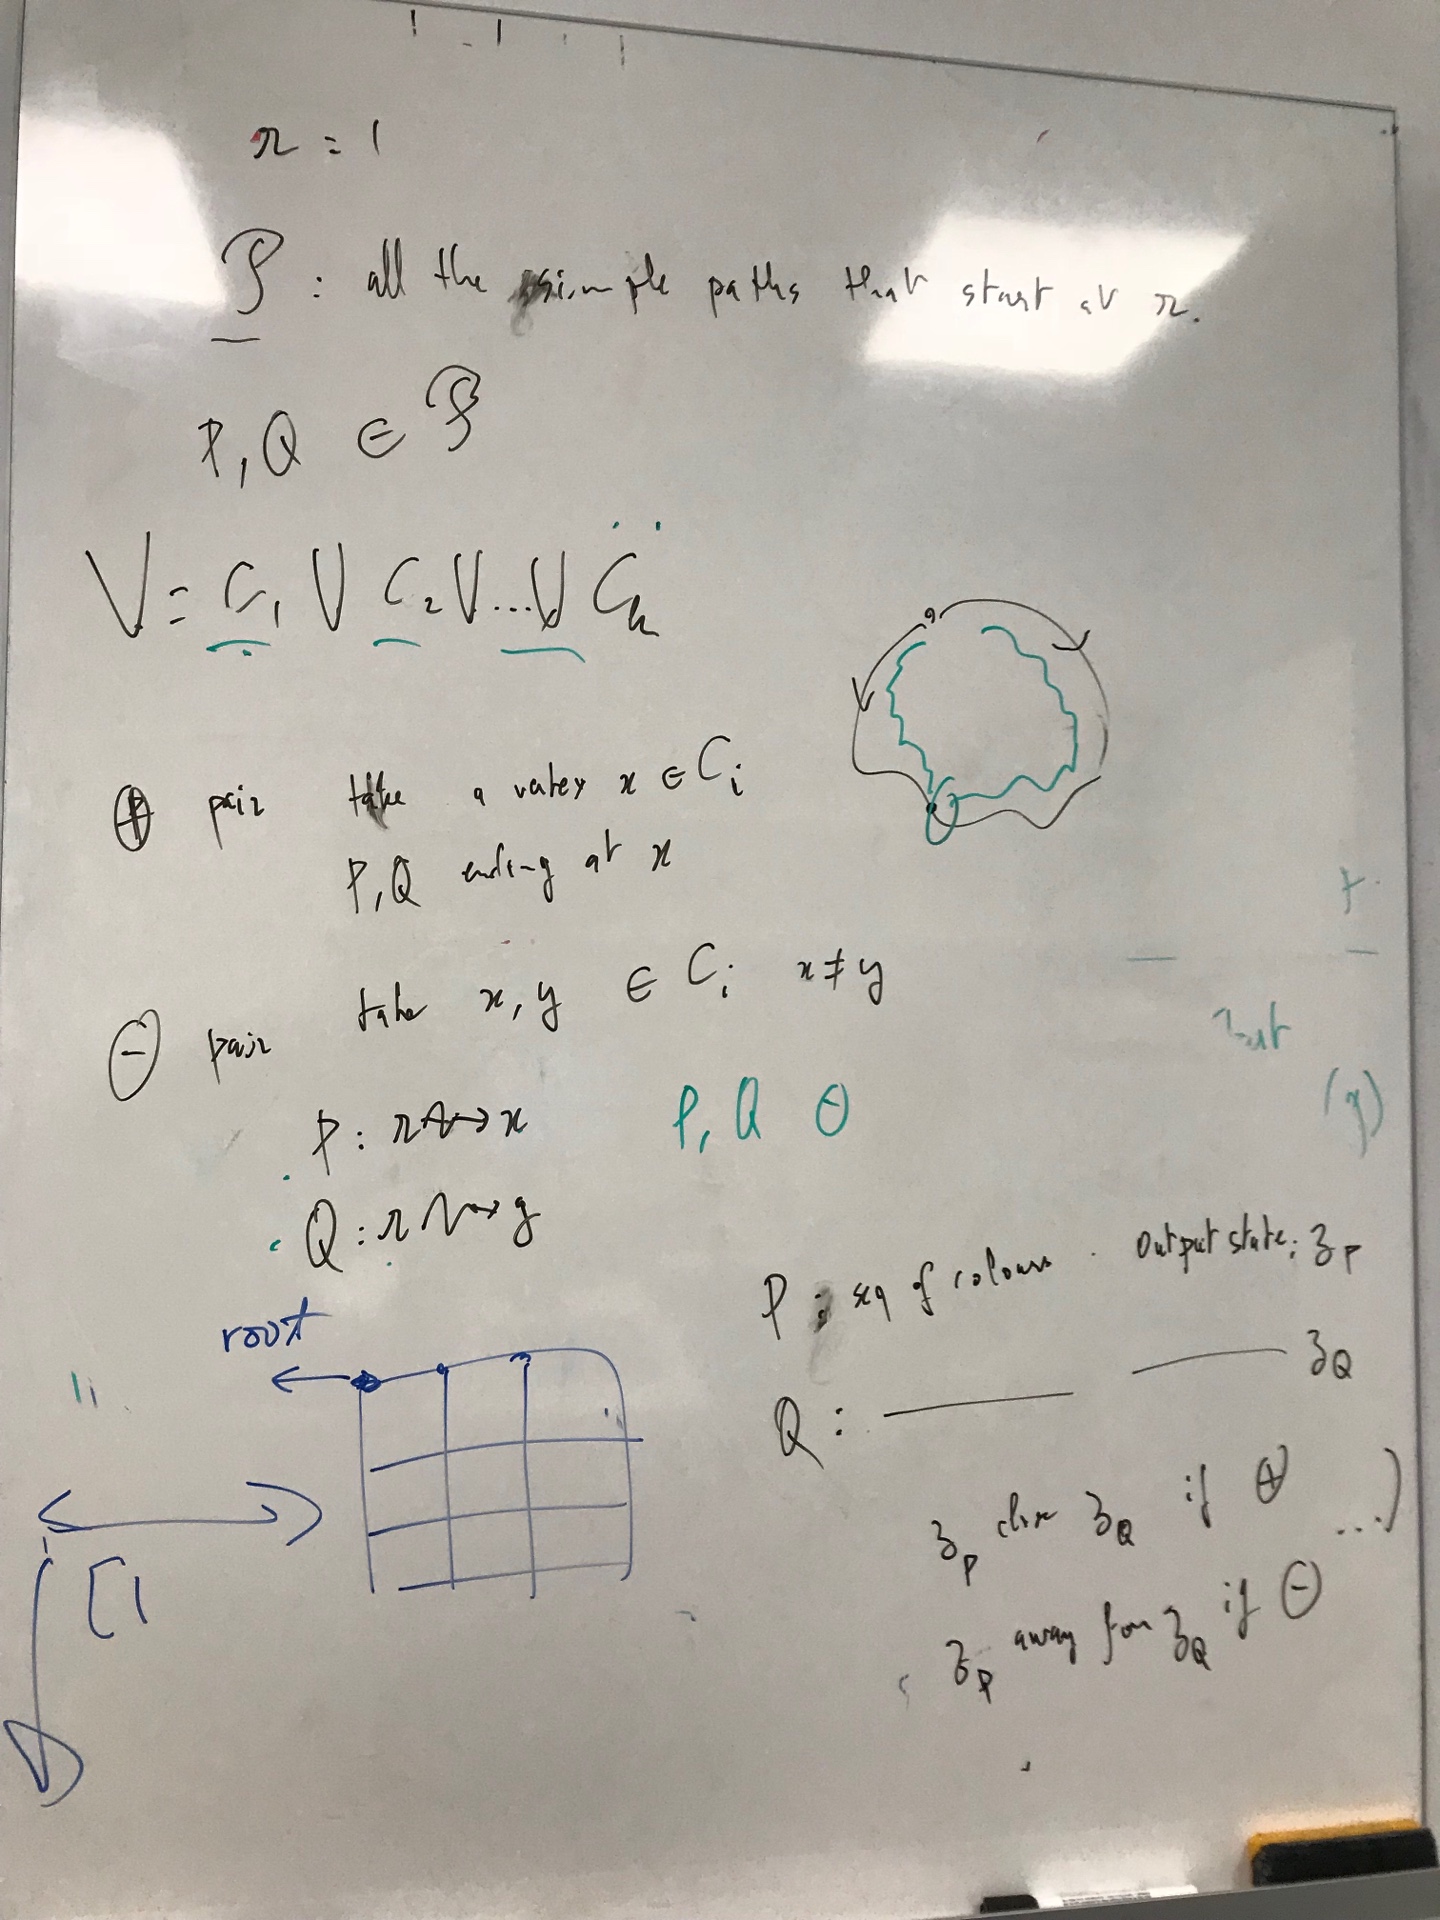 r = 1
P : all the simple paths that start at r.
P, Q ∈ P
V = C₁ ∪ C₂ ∪ ... ∪ Cₖ
⊕ pair take a vertex x ∈ Cᵢ
P, Q ending at x
⊖ pair take x, y ∈ Cᵢ x ≠ y
P : r ⇝ x P, Q ⊖
Q : r ⇝ y
root
P : seq of colours . Output state: z_P
Q : ——— ——— z_Q
z_P close z_Q if ⊕ ...)
z_P away from z_Q if ⊖